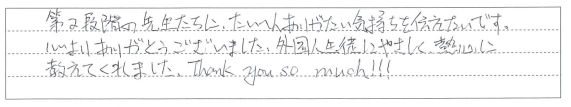 第2段階の先生たちに、たいへんありがたい気持ちを伝えたいです。
心よりありがとうございました。外国人生徒にやさしく、熱心に
教えてくれました。Thank you so much!!!